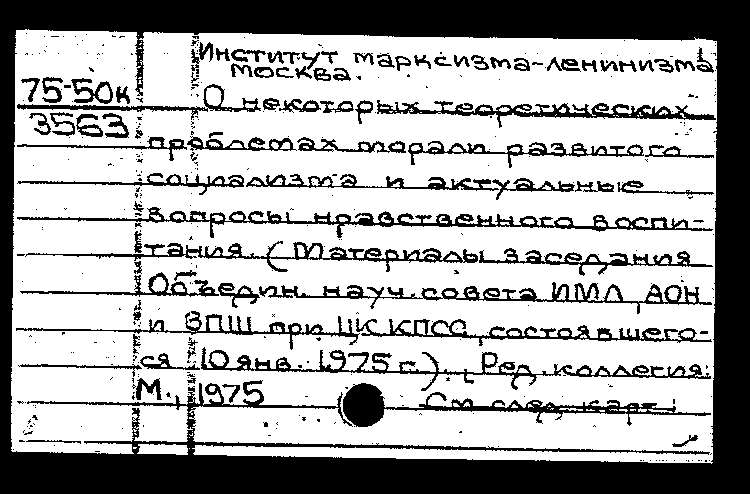 Институт марксизма-ленинизма
Москва.
75-50к
3563
О некоторых теоретических
проблемах морали развитого
социализма и актуальные
вопросы нравственного воспи-
тания. (Материалы заседания
Объедин. науч. совета ИМЛ, АОН
и ВПШ при ЦК КПСС, состоявшего-
ся 10 янв. 1975 г.). [Ред. коллегия:
М., 1975
См след. карт.